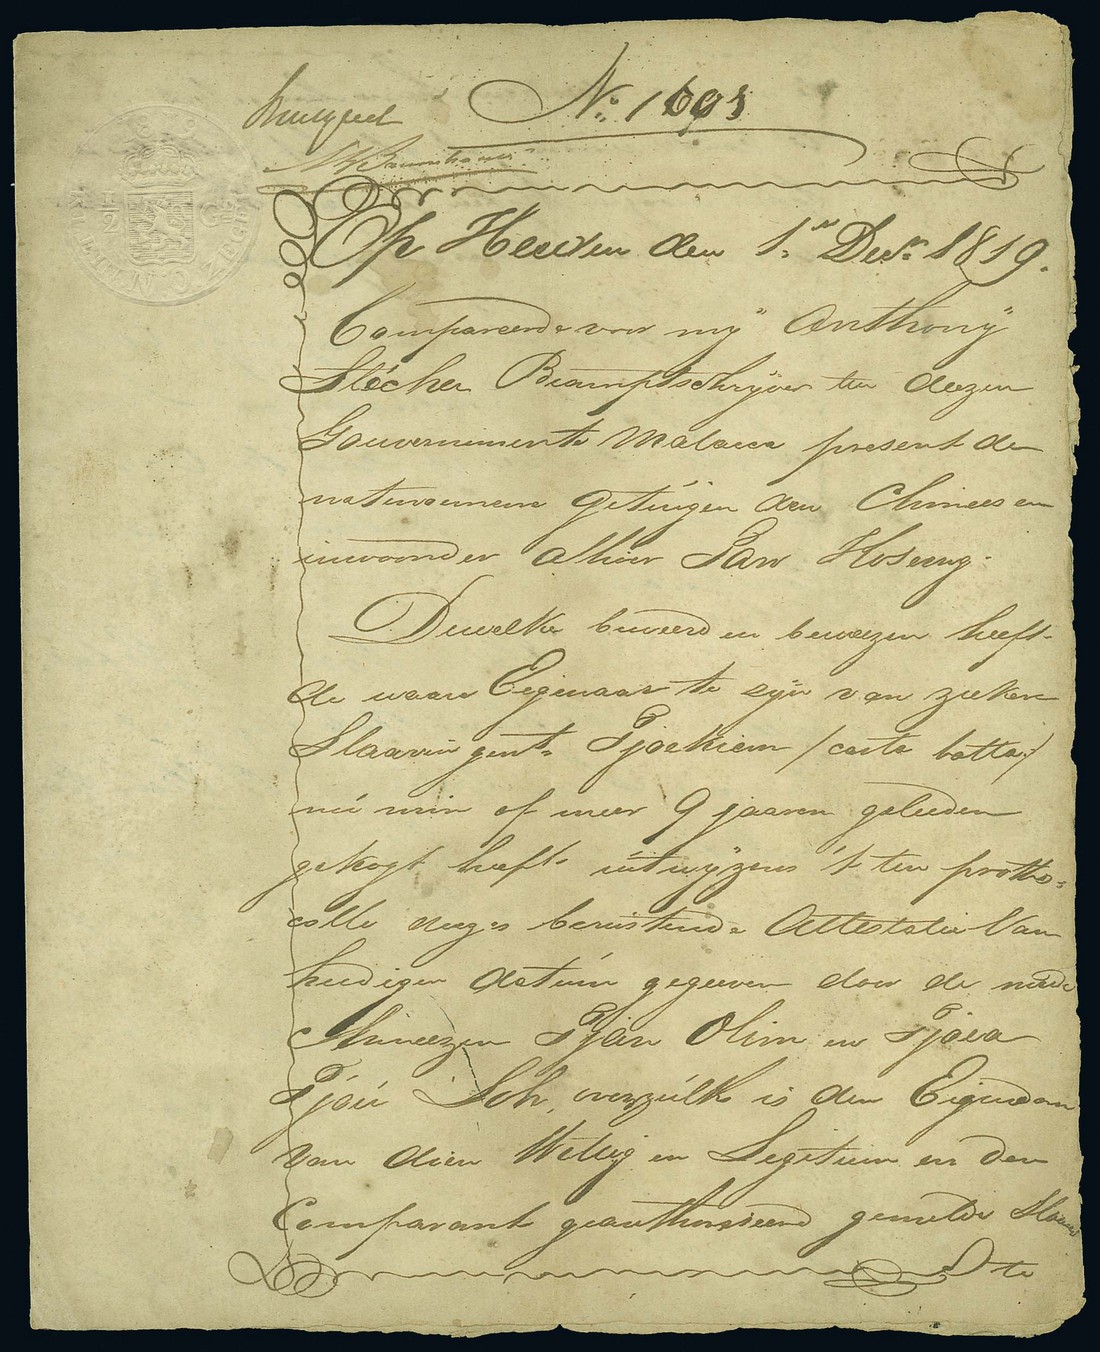 No. 1691
Op Heeden den 1n Decr. 1819.
Compareerde voor mÿ Anthonÿ
Slécher Beamptschrÿver ten deezen
Gouvernemente Malacca present de
natenoemene getúigen den Chineesen
inwoonder alhier Tan Hoseeng.
Dewelke beweerd en beweezen heeft
de waare Eigenaar te zÿn van zeekere
Slaavin gent. Tjoekiem /casta batta/
nú min of meer 9 jaaren geleeden
gekogt heeft úitwÿzens 't ten protho=
colle deezes berustende Attestatie Van
heedigen datúm gegeeven door de meede
Chineezen Tjan Olim en Tjoea
Tjoú Soh, overzúlk is den Eigendom
van dien Wettig en Legitiem en den
Comparant geauthoriseerd gemelde Slaavin
te